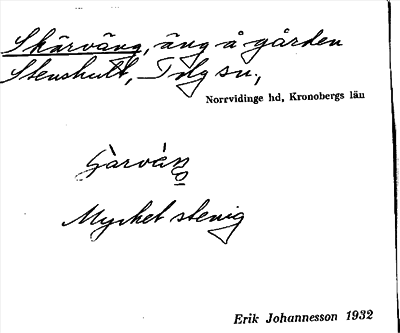 Skärväng, äng å gården
Stenshult, Tolg sn,
Norrvidinge hd, Kronobergs län
Mycket stenig
Erik Johannesson 1932